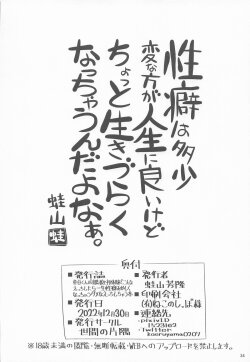 性癖は多少
変な方が人生に良いけど
ちょっと生きづらく
なっちゃうんだよなぁ。
蛙山 蛙
奥付
■発行誌
■発行日
2022年12月30日
■発行サークル
世間の片隅
■発行者
蛙山芳隆
■印刷会社
(有)ねこのしっぽ様
■連絡先
pixivID
kaeruyama0207
※18歳未満の閲覧・無断転載・WEBへのアップロードを禁止します。